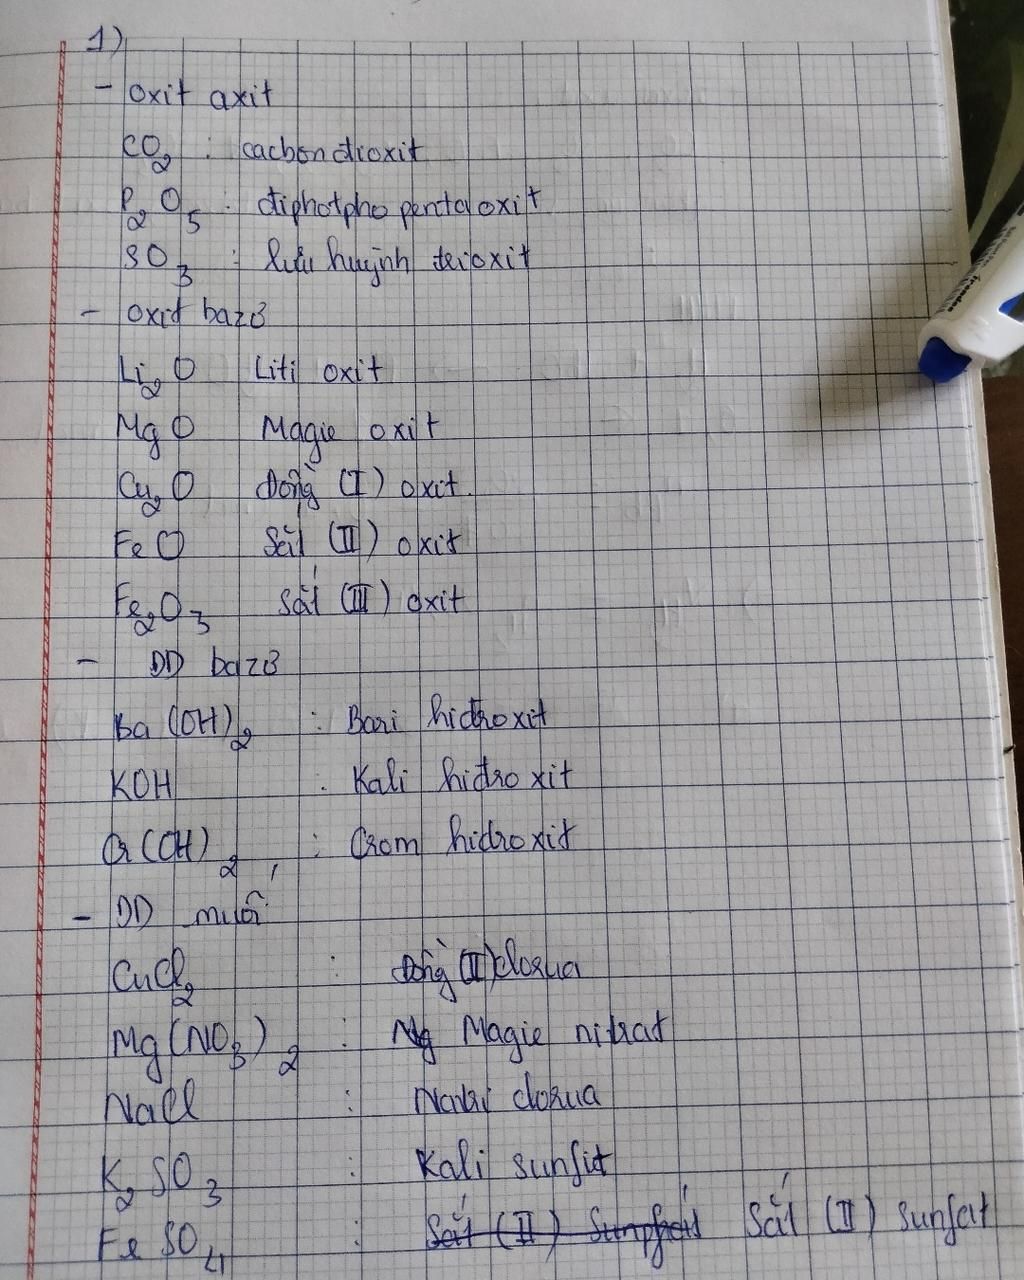 1)
- oxit axit
CO2 : cacbon đioxit
P2O5 : điphotpho pentaoxit
SO3 : lưu huỳnh trioxit
- oxit bazơ
Li2O Liti oxit
MgO Magie oxit
Cu2O đồng (I) oxit.
FeO Sắt (II) oxit
Fe2O3 Sắt (III) oxit
- DD bazơ
Ba(OH)2 : Bari hiđroxit
KOH : Kali hiđroxit
Cr(OH)2 : Crom hidroxit
- DD muối
CuCl2 : đồng (II) clorua
Mg(NO3)2 : Magie nitrat
NaCl : Natri clorua
K2SO3 : Kali sunfit
FeSO4 : Sắt (II) Sắt (II) sunfat